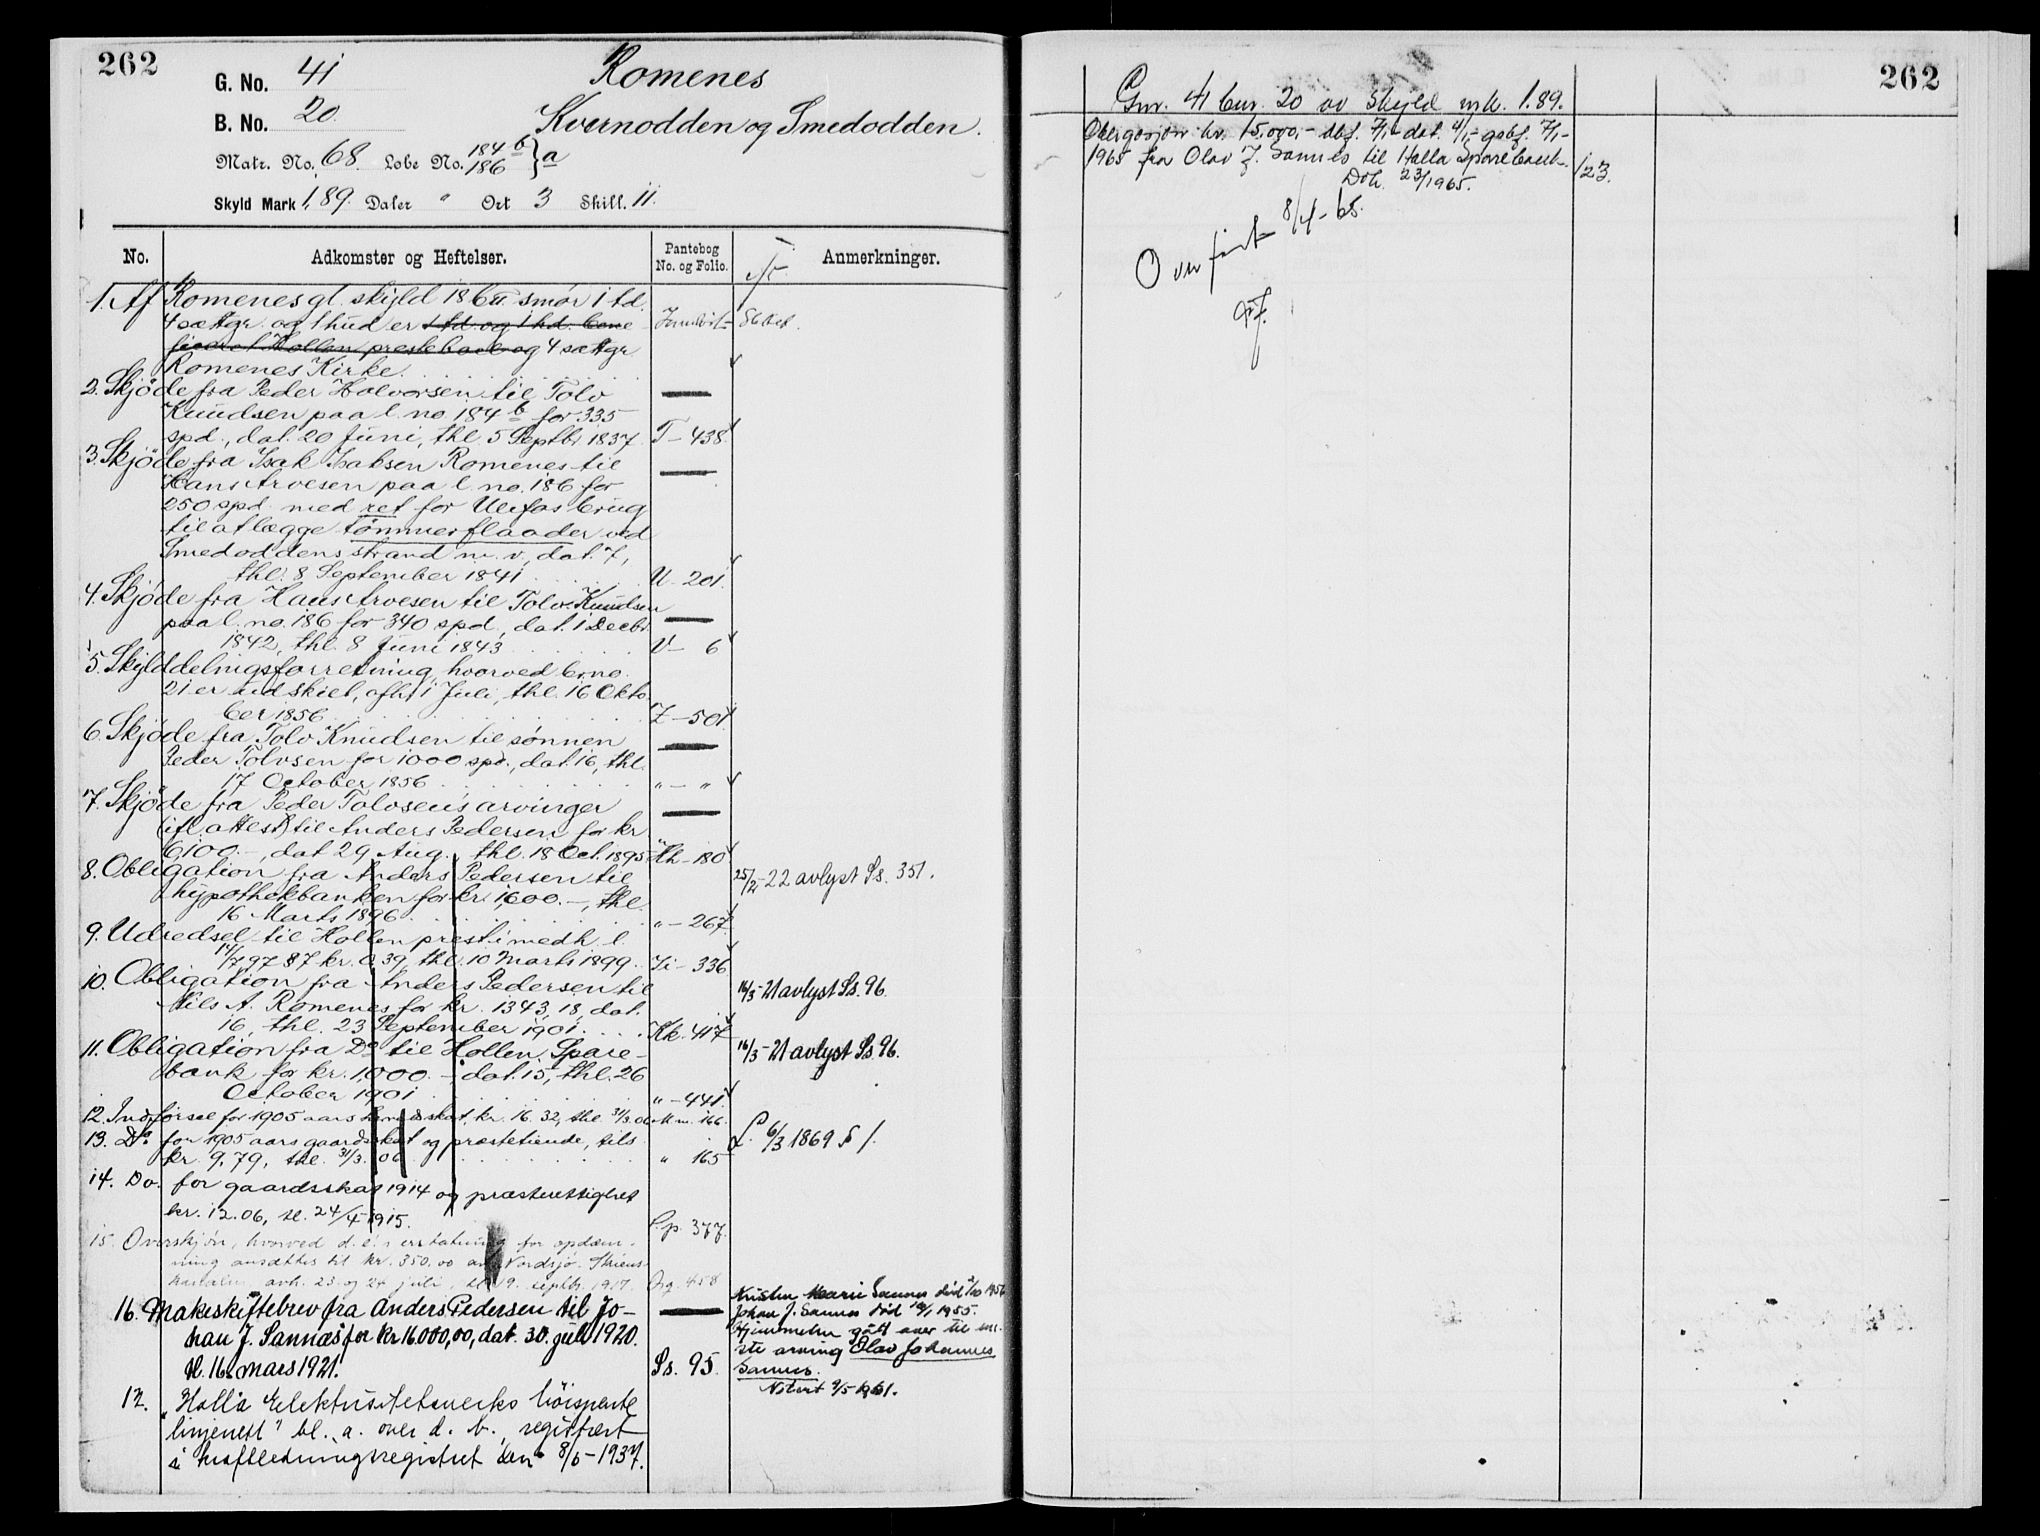 262
G. No. 41
Romenes
B. No. 20
Kvernodden og Smedodden.
Matr. No. 68. Løbe No. 184 b 186 } a
Skyld Mark 1,89. Daler " Ort 3 Skill. 11.
No. Adkomster og Heftelser. Pantebog No. og Folio. Anmerkninger.
1. Af Romenes gl. skyld 186 smør 1 td.
4 sættgr. og 1 hud er 1 td. og 1 hd. bene
Hollen prestebord og 4 sættgr
Romenes Kirke
2. Skjøde fra Peder Halvorsen til Tolv
Knudsen paa l. no. 184 b for 335
spd., dat. 20 Juni, thl. 5 Septbr 1837 T – 438
3. Skjøde fra Isak Isaksen Romenes til
Hans Arvesen paa l. no. 186 for
250 spd. med ret for Ulefos brug
til at lægge tømmerflaader ved
Smedoddens strand m. v., dat. 7,
thl. 8 September 1841 U – 201
4. Skjøde fra Hans Arvesen til Tolv Knudsen
paa l. no. 186 for 340 spd., dat. 1 Decbr.
1842, thl. 8 Juni 1843 V – 6
5. Skylddelingsforretning, hvorved br. no.
21 er udskilt, afh. 1 Juli, thl. 16 Okto
ber 1856 Z – 501
6. Skjøde fra Tolv Knudsen til sønnen
Peder Tolvsen for 1000 spd., dat. 16, thl.
17 October 1856 " – "
7. Skjøde fra Peder Tolvsen's arvinger
(ifl. attest) til Anders Pedersen for kr
6100.–, dat 29 Aug., thl. 18 Oct. 1895 Hh – 180
8. Obligation fra Anders Pedersen til
hypothekbanken for kr. 1,600.–, thl.
16 Marts 1896 " – 267
25/2-22 avlyst Ss. 351.
9. Udredsel til Hollen prest i medh. l.
14/7 97 § 7 kr. 0,39, thl. 10 Marts 1899 Ii – 336
10. Obligation fra Anders Pedersen til
Nils A. Romenes for kr. 1343,18, dat.
16, thl. 23 September 1901 Kk. 417
16/3-21 avlyst Ss. 96.
11. Obligation fra Do til Hollen Spare-
bank for kr. 1,000.–, dat. 15, thl. 26
October 1901 " – 441
16/3-21 avlyst Ss. 96.
12. Indførsel for 1905 aars skat, kr. 16.32, thl. 31/3.06 Mm. 166
13. Do. for 1905 aars gaardskat og præstetiende, tils
kr. 9,79, thl. 31/3. 06 " 165
L. 6/3 1869 § 1.
14. Do. for gaardsskat 1914 og præsterettighet
kr. 12.06, tl. 24/4 1915. Pp. 377.
15. Overskjøn, hvorved d. e.s erstatning for opdæm-
ning ansættes til kr. 350.00 av Nordsjø. Skiens-
kanalen, avh. 23. og 24 juli, tl. 19. septbr. 1917. 458
16. Makeskiftebrev fra Anders Pedersen til Jo-
han J. Sannæs for kr. 16000,00, dat. 30. juli 1920.
tl. 16. mars 1921. Ss. 95.
Johan J. Sannes død 1955.
Hjemmelen gått over til en-
ste arving Olav Johannes
Sannes.
Notert 9/5 1961.
17. "Holla Elektrisitetsverks høispente
linjenett" bl. a. over d. b., registrert
i kraftledningsregistret den 8/6-1937.
262
Gnr. 41 bnr. 20 av skyld mk. 1.89.
Obligasjon kr. 15.000,– dbf. 7/1– dat. 4/1,–
1965 fra Olav J. Sannes til Holla Sparebank.
Dok. 23/1965. 123.
Overført 8/4-65.